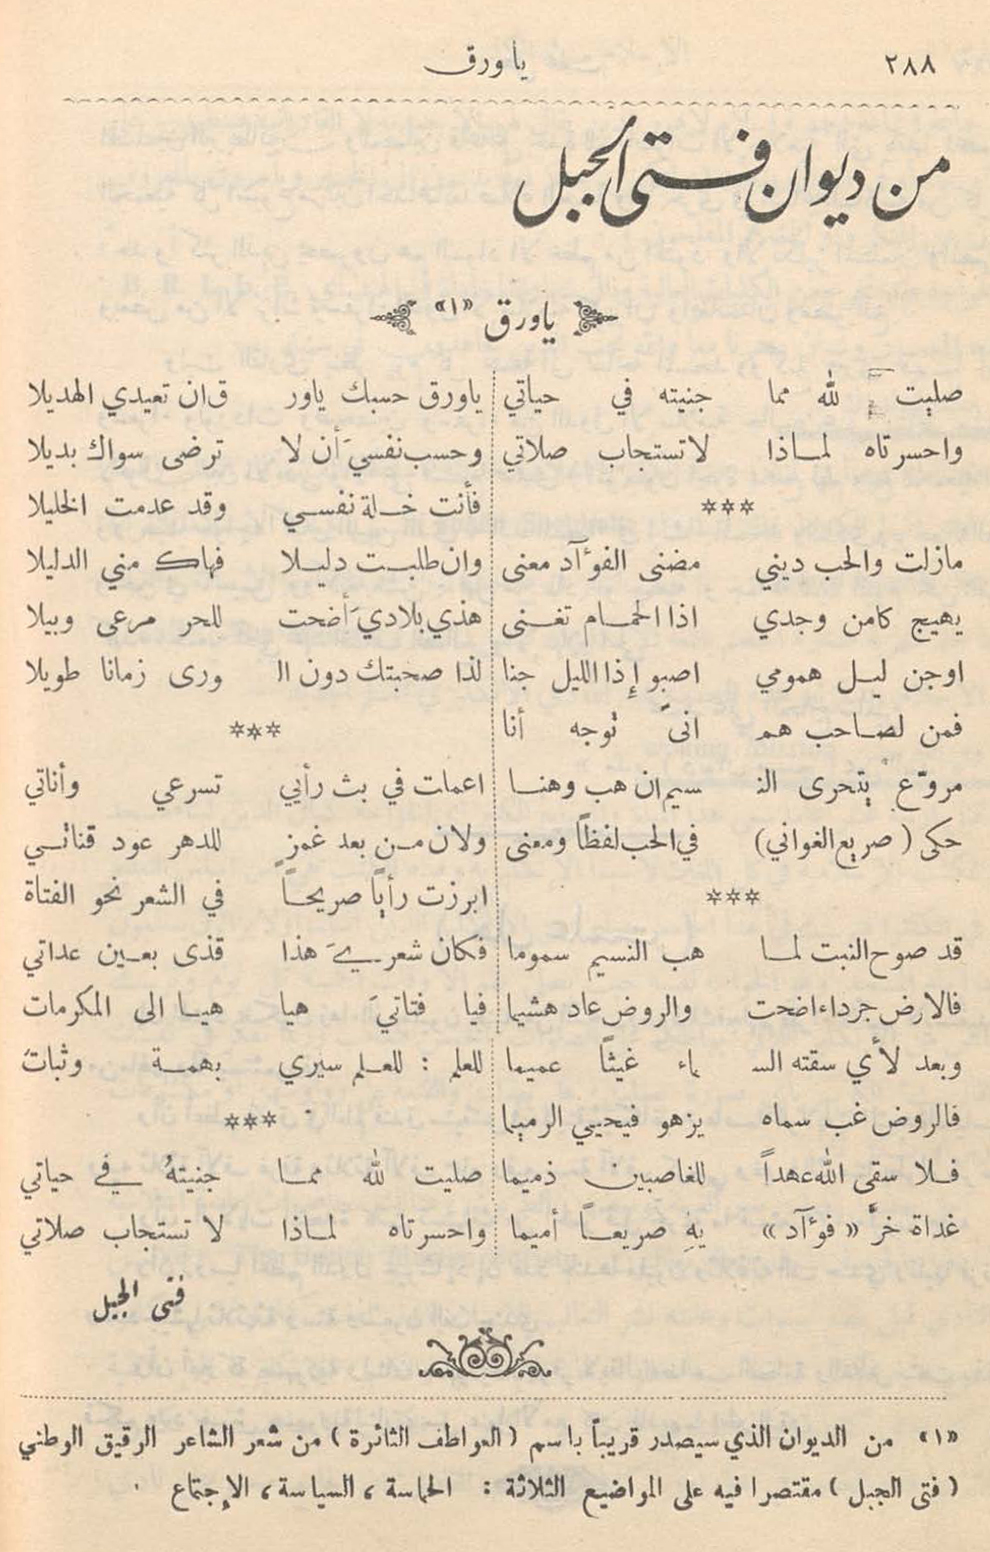 ٢٨٨
ياورق
من ديوان فتى الجبل
ياورق «١»
صليت لله مما جنيته في حياتي
واحسرتاه لماذا لا تستجاب صلاتي
***
مازلت والحب ديني مضنى الفوٴآد معنى
يهيج كامن وجدي اذا الحمام تغنى
اوجن ليل همومي اصبو إذا الليل جنا
فمن لصاحب هم انىّ توجه أنا
مروّع يتحرى النـ سيم ان هب وهنا
حكى (صريع الغواني) في الحب لفظاً ومعنى
***
قد صوح النبت لما هب النسيم سموما
فالارض جرداء اضحت والروض عاد هشيما
وبعد لأي سقته السـ ـماء غيثاً عميما
فالروض غب سماه يزهو فيحيي الرميما
فلا سقى الله عهداً للغاصبين ذميما
غداة خرَّ «فوٴآد» يهِ صريعاً أميما
ياورق حسبك ياور ق ان تعيدي الهديلا
وحسب نفسيَ أن لا ترضى سواك بديلا
فأنت خلة نفسي وقد عدمت الخليلا
وان طلبت دليلا فهاك مني الدليلا
هذي بلاديَ أضحت للحر مرعى وبيلا
لذا صحبتك دون الـ ورى زمانا طويلا
***
اعملت في بث رأيي تسرعي وأناتي
ولان من بعد غمزٍ للدهر عود قناتي
ابرزت رأياً صريحاً في الشعر نحو الفتاة
فكان شعريَ هذا قذى بعين عداتي
فيا فتاتيَ هيا هيا الى المكرمات
للعلم : للعلم سيري بهمة وثبات
***
صليت لله مما جنيتهُ في حياتي
واحسرتاه لماذا لا تستجاب صلاتي
فتى الجبل
«١» من الديوان الذي سيصدر قريباً باسم (العواطف الثائرة) من شعر الشاعر الرقيق الوطني
(فتى الجبل) مقتصرا فيه على المواضيع الثلاثة : الحماسة، السياسة، الإجتماع .